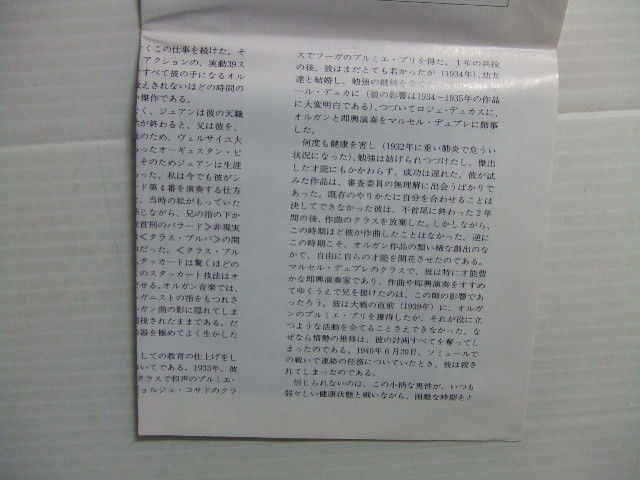 くこの仕事を続けた。そ
アクションの、実動39ス
すべて彼の手になるオル
えきれないほどの時間の
傑作である。
く、ジュアンは彼の天職
学が終わると、父は彼を、
のため、ヴェルサイユ大
ったオーギュスタン・ピ
そのためジェアンは生涯
った。私は今でも彼がシ
ード第4番を演奏する仕方
、当時の私がもっていた
感じながら、兄の指の下か
首刑のバラード》非現実
《クラス・プルバ》の間
のだった。《クラス・プル
タッカートは驚くほどの
のスタッカート技法はオ
させる。オルガン音楽では、
ガニストの指をもつれさ
ガン曲の影に隠れてしま
視されたままである。だ
器を極めてよく生かした
しての教育の仕上げをし
いてである。1933年、彼
クラスで和声のプルミエ・
ョルジュ・コサドのクラ
スでフーガのプルミエ・プリを得た。1年の兵役
の後、彼はまだとても若かったが(1934年)、幼友
達と結婚し、勉強の継続を全て
ール・デュカに(彼の影響は1934-1935年の作品
に大変明白である)、つづいてロジェ・デュカスに、
オルガンと即興演奏をマルセル・デュプレに師事
した。
何度も健康を害し(1932年に重い肺炎で危うい
状況になった)、勉強は妨げられつづけし、傑出
した才能にもかかわらず、成功は遅れた。彼が試
みた作品は、審査委員の無理解に出会うばかりで
あった。既存のやりかたに自分を合わせることは
決してできなかった彼は、不首尾に終わった2年
間の後、作曲のクラスを放棄した。しかしながら、
この時期ほど彼が作曲したことはなかった。逆に
この時期こそ、オルガン作品の想い稀な創出のな
かで、自由に自らの才能を開花させたのである。
マルセル・デュプレのクラスで、彼は特に才能豊
かな即興演奏家であり、作曲や即興演奏をすすめ
てゆくうえで兄を援けたのは、この師の影響であ
ったろう。彼は大戦の直前(1939年)に、オルガ
ンのプルミエ・プリを獲得したが、それが役に立
つような活動を全てることさえできなかった。な
ぜなら情勢の推移は、彼の計画すべてを奪ってし
まったのである。1940年6月20日、ソミュールで
の戦いで連絡の任務についていたとき、彼は殺さ
れてしまったのである。
信じられないのは、この小柄な男性が、いつも
弱々しい健康状態と戦いながら、困難な時期をと